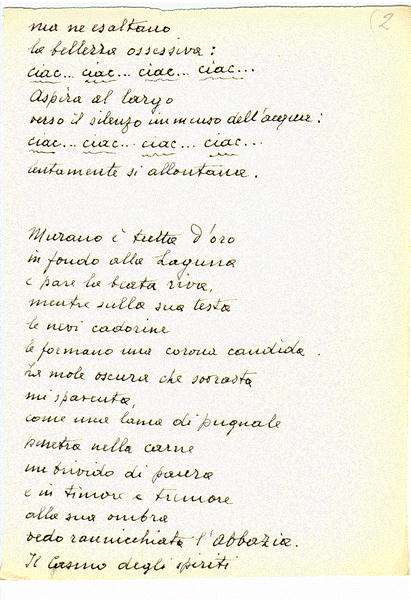 (2
ma ne esaltano
la bellezza ossessiva:
ciac... ciac... ciac... ciac...
Aspira al largo
verso il silenzo immenso dell'acqua:
ciac... ciac... ciac... ciac...
lentamente si allontana.
Murano è tutta d'oro
in fondo alla Laguna
e pare la beata riva,
mentre sulla sua testa
le nevi cadorine
le formano una corona candida.
La mole oscura che sovrasta
mi spaventa,
come una lama di pugnale
penetra nella carne
un brivido di paura
e in timore e tremore
alla sua ombra
vedo rannicchiata l'abbazia.
Il Casino degli spiriti